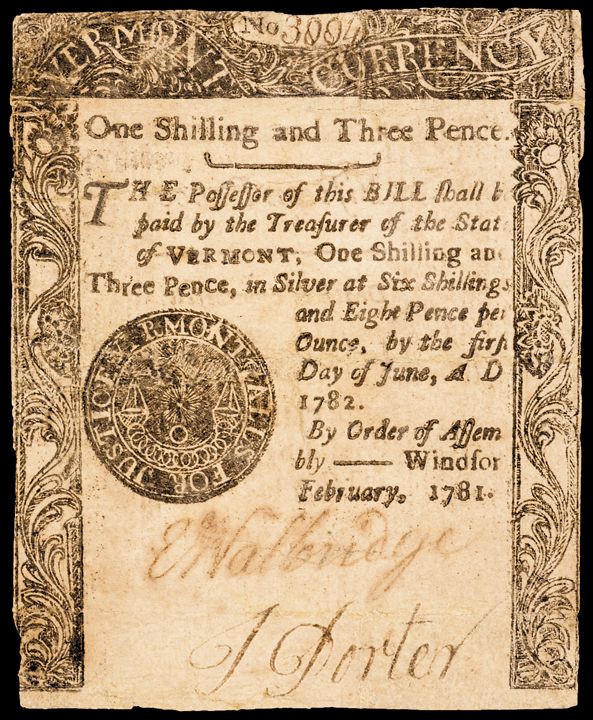 VERMONT CURRENCY
No 3004
One Shilling and Three Pence.
THE Poſſeſſor of this BILL ſhall b
paid by the Treaſurer of the Stat
of VERMONT, One Shilling an
Three Pence, in Silver at Six Shillings
and Eight Pence per
Ounce, by the firſ
Day of June, A. D
1782.
By Order of Aſſem
bly —— Windſor
February, 1781.
VERMONT CALLS FOR JUSTICE
E Walbridge
J Porter